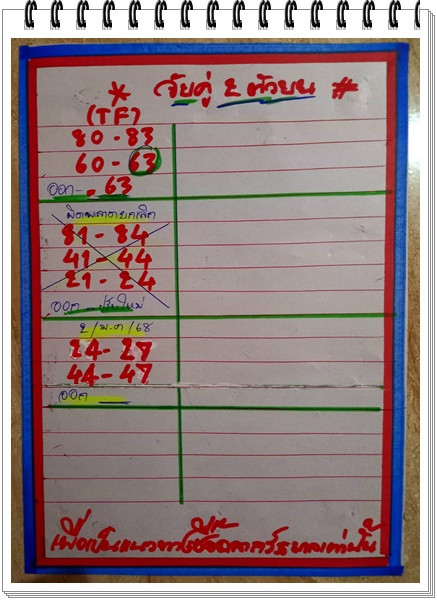 * จับคู่ 2 ตัวบน #
(TF)
80-83
60-63
ออก-. 63
ผิดพลาดยกเลิก
81-84
41-44
21-24
ออก - ปรับใหม่
2/ม.ค/68
24-27
44-47
ออก
เพื่อเป็นแนวทางซื้อสลากรัฐบาลเท่านั้น